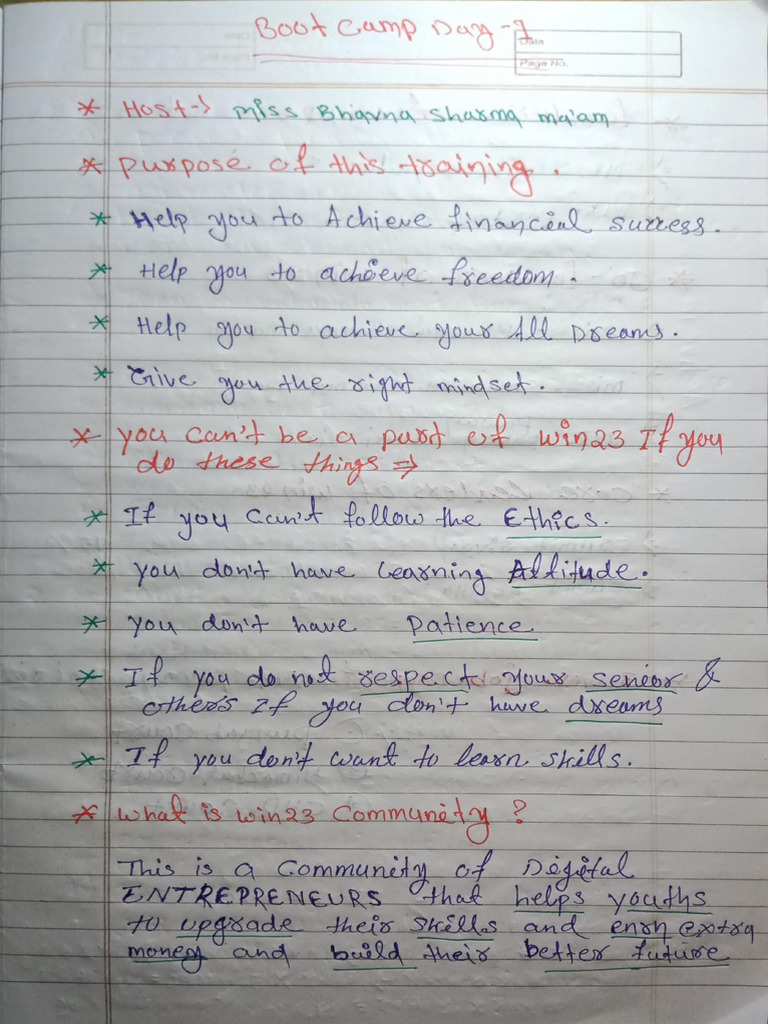 Boot Camp Day-1
Date
Page No.
* Host-> Miss Bhavna Sharma ma'am
* Purpose of this training.
* Help you to Achieve financial success.
* Help you to achieve freedom.
* Help you to achieve your All Dreams.
* Give you the right mindset.
* you can't be a part of win23 If you
do these things ⇒
* If you can't follow the Ethics.
* you don't have Learning Altitude.
* you don't have Patience
* If you do not respect your senior &
others If you don't have dreams
* If you don't want to learn skills.
* What is win23 Community?
This is a Community of Digital
ENTREPRENEURS that helps youths
to upgrade their skills and enrn extra
money and build their better future